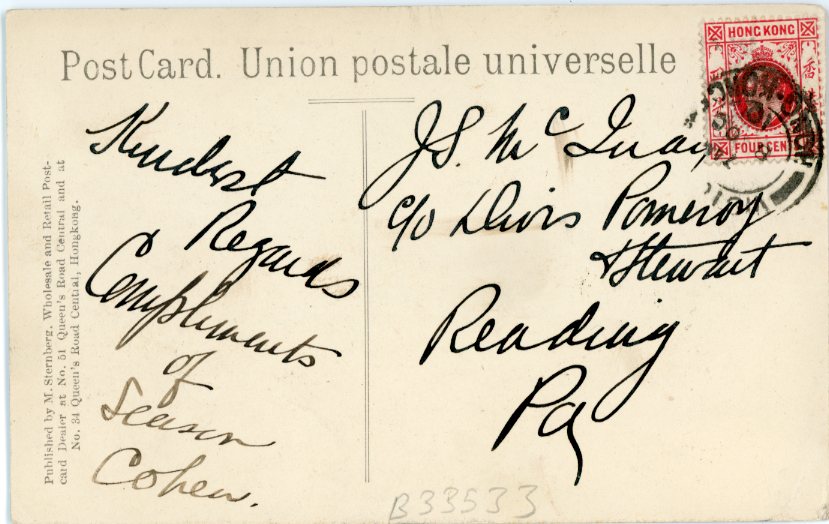 Post Card. Union postale universelle
HONG KONG
FOUR CEN
Kindest
Regards
Compliments
of
Season
Cohen.
J.S. Mc
c/o Divis Pomeroy
& Stewart
Reading
Pa
Published by M. Sternberg, Wholesale and Retail Post-
card Dealer at No. 51 Queen's Road Central and at
No. 34 Queen's Road Central, Hongkong.
B33533